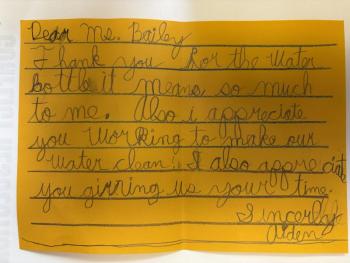 Dear Ms. Baily
Thank you for the water
bottle it means so much
to me. Also i appreciate
you working to make our
water clean! I also appreciate
you giving us your time.
Sincerly
Aiden